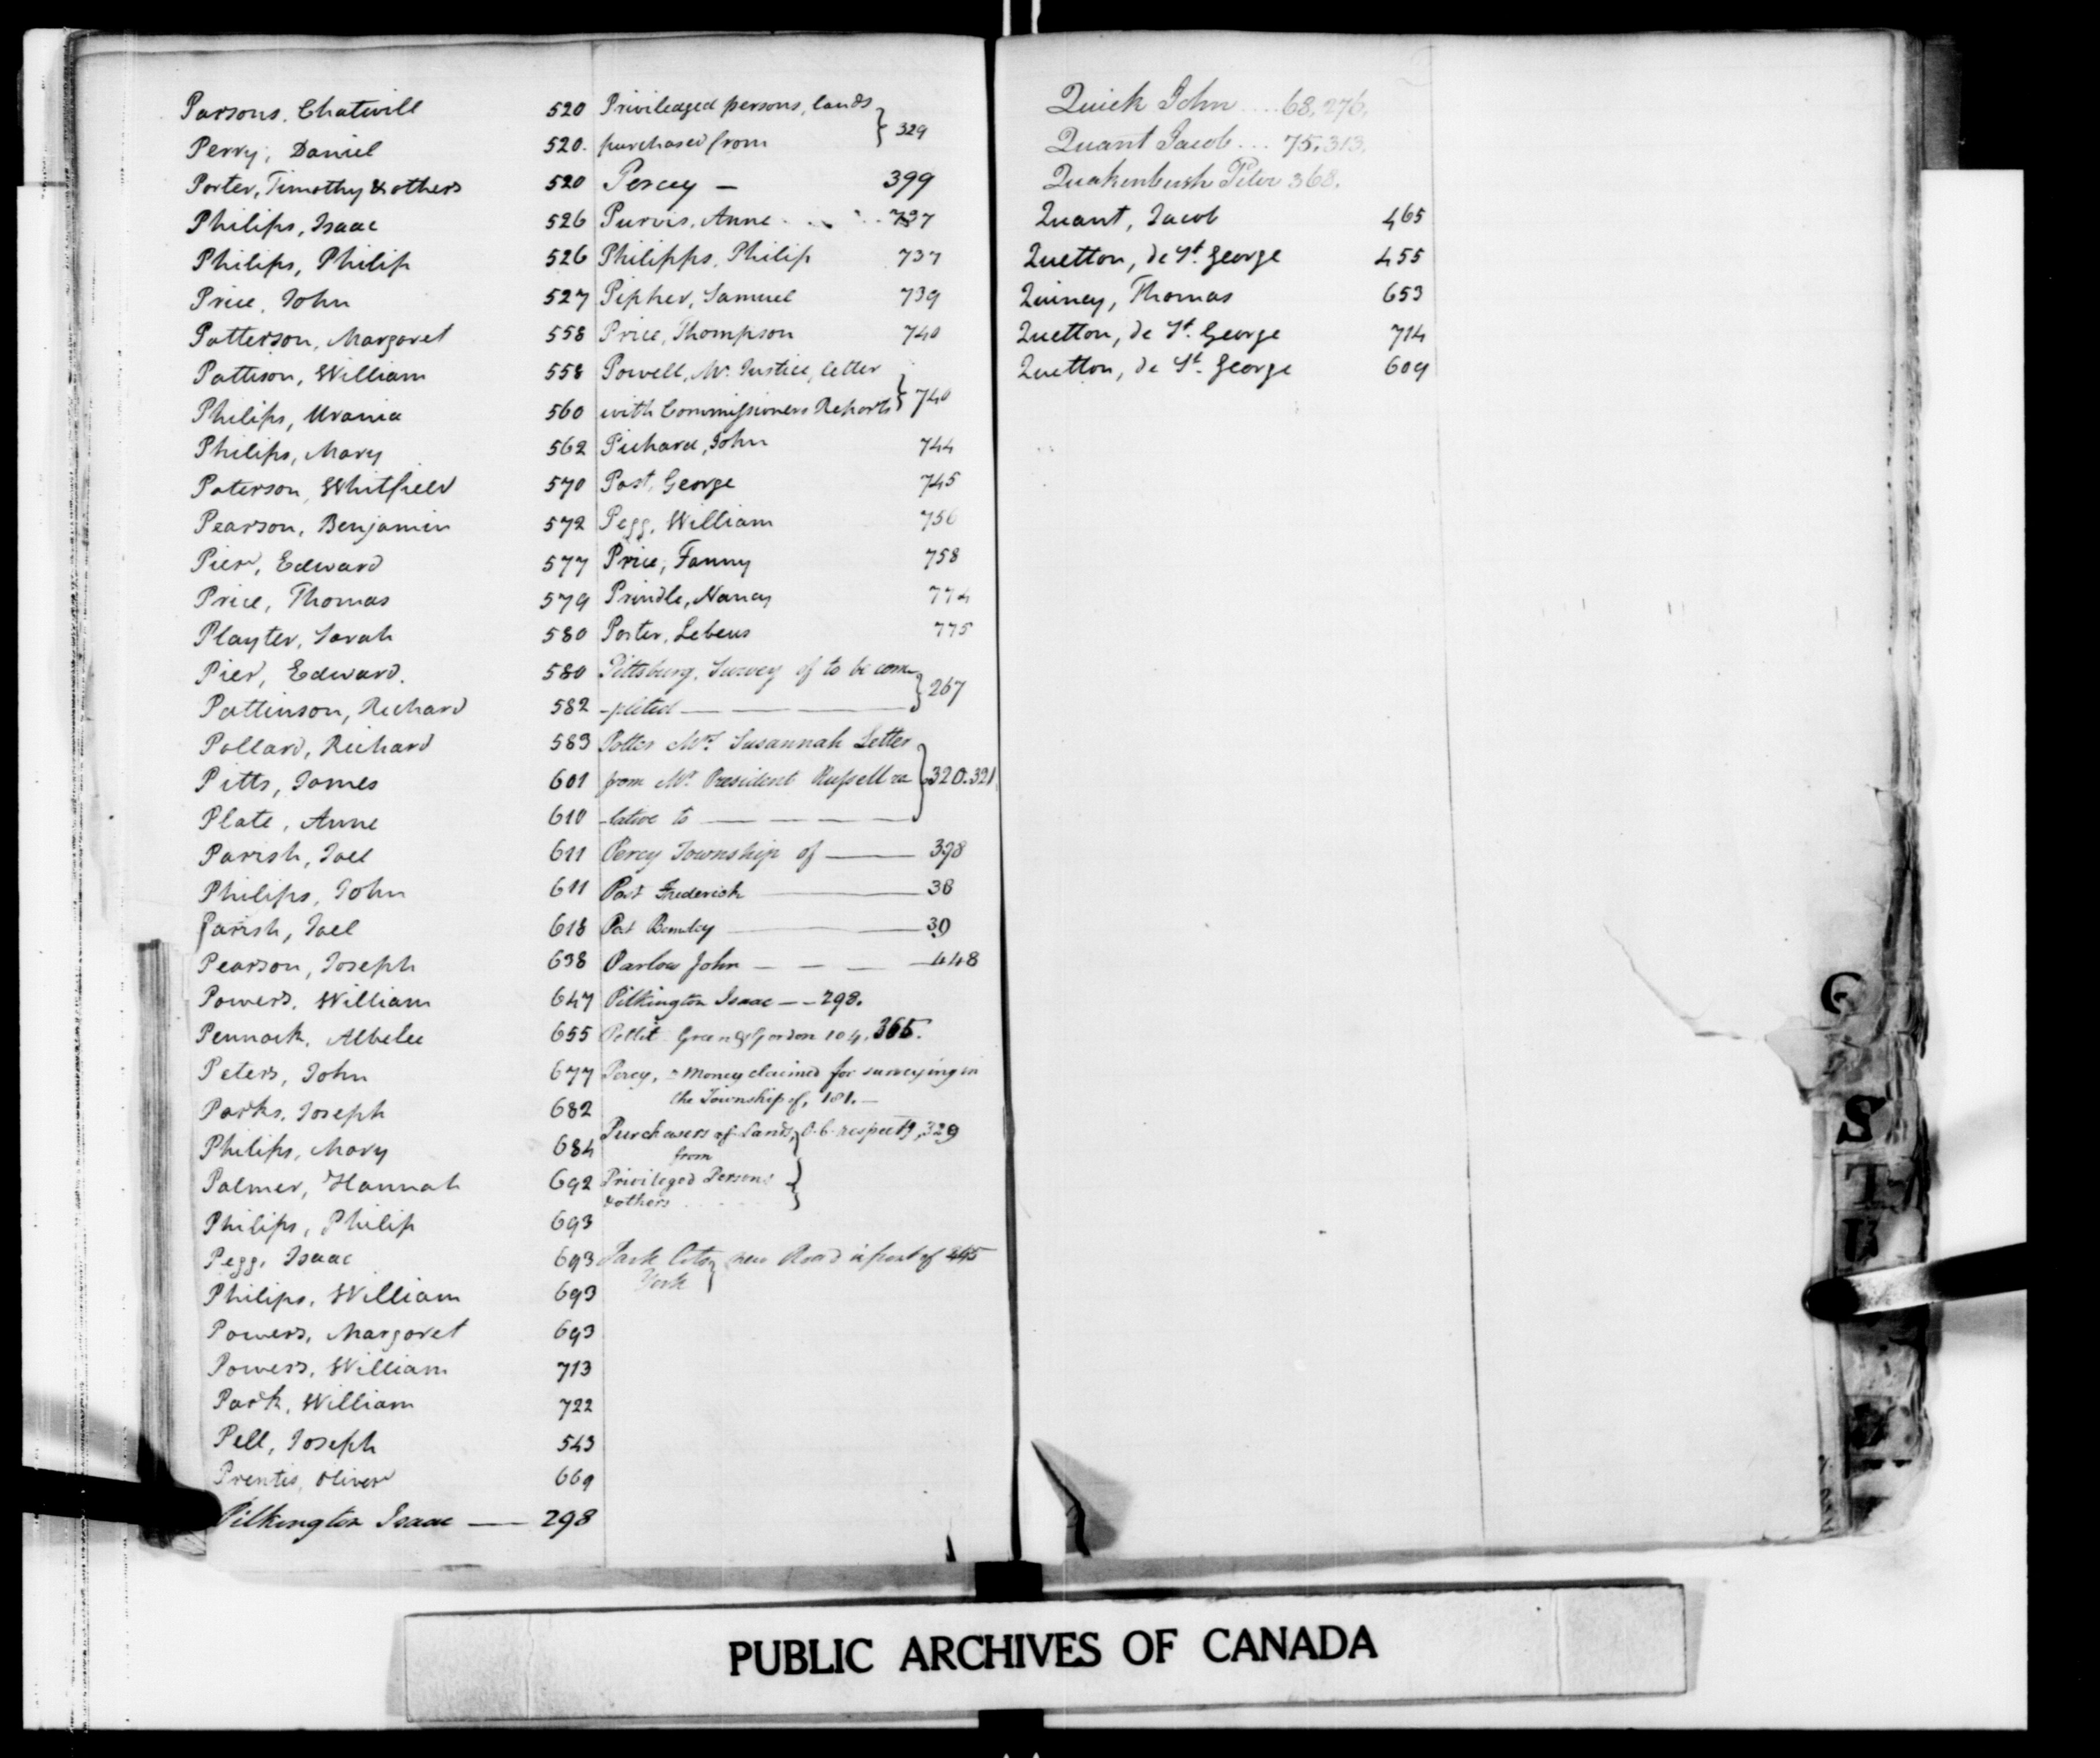 Parsons, Chatwill 520
Perry, Daniel 520.
Porter, Timothy & others 520
Philips, Isaac 526
Philips, Philip 526
Price, John 527
Patterson, Margaret 558
Pattison, William 558
Philips, Urania 560
Philips, Mary 562
Paterson, Whitfield 570
Pearson, Benjamin 572
Pier, Edward 577
Price, Thomas 579
Playter, Sarah 580
Pier, Edward. 580
Pattinson, Richard 582
Pollard, Richard 583
Pitts, James 601
Plate, Anne 610
Parish, Joel 611
Philips, John 611
Parish, Joel 618
Pearson, Joseph 638
Powers, William 647
Pennock, 655
Peters, John 677
Parks, Joseph 682
Philips, Mary 684
Palmer, Hannah 692
Philips, Philip 693
Pegg, Isaac 693
Philips, William 693
Powers, Margaret 693
Powers, William 713
Park, William 722
Pell, Joseph 543
Prentis, Oliver 669
Pilkington Isaac — 298
Priviledged persons, lands
purchased from } 329
Percy — 399
Purvis, Anne . . . . 737
Philipps, Philip 737
Pipher, Samuel 739
Price, Thompson 740
Powell, Mr. Justice, letter
with Commissioners Reports } 740
Pichard, John 744
Post, George 745
Pegg, William 756
Price, Fanny 758
Prindle, Nancy 774
Porter, Lebeus 775
Pittsburg, Survey of to be com
-pleted — — — — } 267
Potter Mrs Susannah Letter
from Mr. President Russell re
-lative to — — — — } 320.321
Percy Township of — 398
Port Frederick — 38
Port — 39
Parlow John — — — 448
Pilkington Isaac — — 298.
Pollit Green & Gordon 104, 365.
Percy, - Money claimed for surveying in
the Township of, 181. —
Purchasers of Lands, } O.C. respectg, 329
from
Privileged Persons
& others }
Park Cots } new Road in front of 245
York
Quick John .... 68, 276,
Quant Jacob ... 75, 313,
Quakenbush Peter 368.
Quant, Jacob 465
Quetton, de St. George 455
Quiney, Thomas 653
Quetton, de St. George 714
Quetton, de St. George 609
Q
S
T
U
PUBLIC ARCHIVES OF CANADA